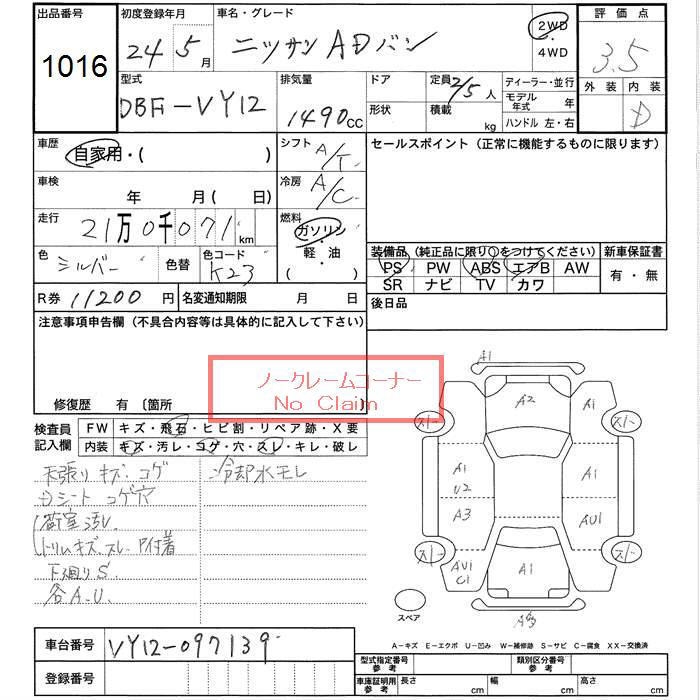 出品番号 初度登録年月 車名・グレード 評価点
1016 24年5月 ニッサン ADバン 2WD ・ 4WD 3.5
外装 内装 D
型式 排気量 ドア 定員 2/5人 ディーラー・並行
DBF-VY12 1490cc 形状 積載 kg モデル年式 年
ハンドル 左・右
車歴 自家用・( ) シフト A/T セールスポイント (正常に機能するものに限ります)
車検 年 月(日) 冷房 A/C
走行 21万0千071km 燃料 ガソリン・軽・油
色 シルバー 色替 色コード K23
装備品 (純正品に限り○をつけてください) 新車保証書
PS PW ABS エアB AW 有・無
SR ナビ TV カワ
R券 11200円 名変通知期限 月 日 後日品
注意事項申告欄 (不具合内容等は具体的に記入して下さい)
ノークレームコーナー
No Claim
修復歴 有 〔箇所
検査員記入欄 FW キズ・飛石・ヒビ割・リペア跡・X要
内装 キズ・汚レ・コゲ・穴・スレ・キレ・破レ
天張りキズ・コゲ 冷却水モレ
シート コゲ穴
荷室汚レ
トリムキズ、スレ P付着
下廻りS
各A.U.
A1
A2 A1
A1 A1
U2
A3 AU1
AU1 A1
C1
スペア
A3
A-キズ E-エクボ U-凹み W-補修跡 S-サビ C-腐食 XX-交換済
車台番号 VY12-097139
登録番号
型式指定番号 参考 類別区分番号 参考
車庫証明用 参考 長さ cm 幅 cm 高さ cm